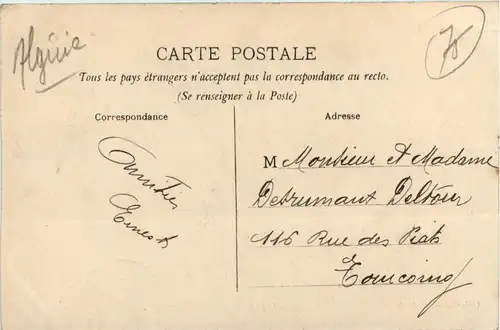 Algérie
CARTE POSTALE
Tous les pays étrangers n'acceptent pas la correspondance au recto.
(Se renseigner à la Poste)
Correspondance
Adresse
Amitiés
Ernest
M Monsieur et Madame
Destrumaux Deltour
116 Rue des Piats
Tourcoing